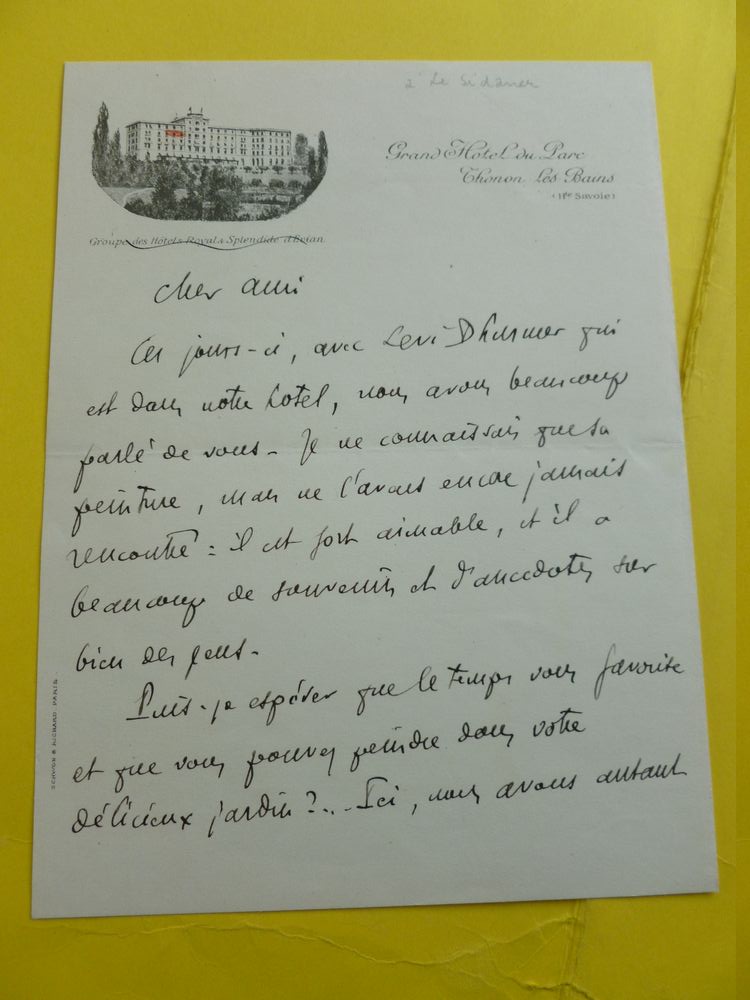 a Le Sidaner
Grand Hôtel du Parc
Thonon Les Bains
(Hte Savoie)
Groupe des Hôtels Royal & Splendide d'Evian
Cher ami
Ces jours-ci, avec Levi Dhurmer qui
est dans notre hotel, nous avons beaucoup
parlé de vous - Je ne connaissais que sa
peinture, mais ne l'avais encore jamais
rencontré : il est fort aimable, et il a
beaucoup de souvenirs et d'anecdotes sur
bien des gens -
Puis-je espérer que le temps vous favorise
et que vous pouvez peindre dans votre
délicieux jardin ?... Ici, nous avons autant
SCHVON & RICHARD PARIS.